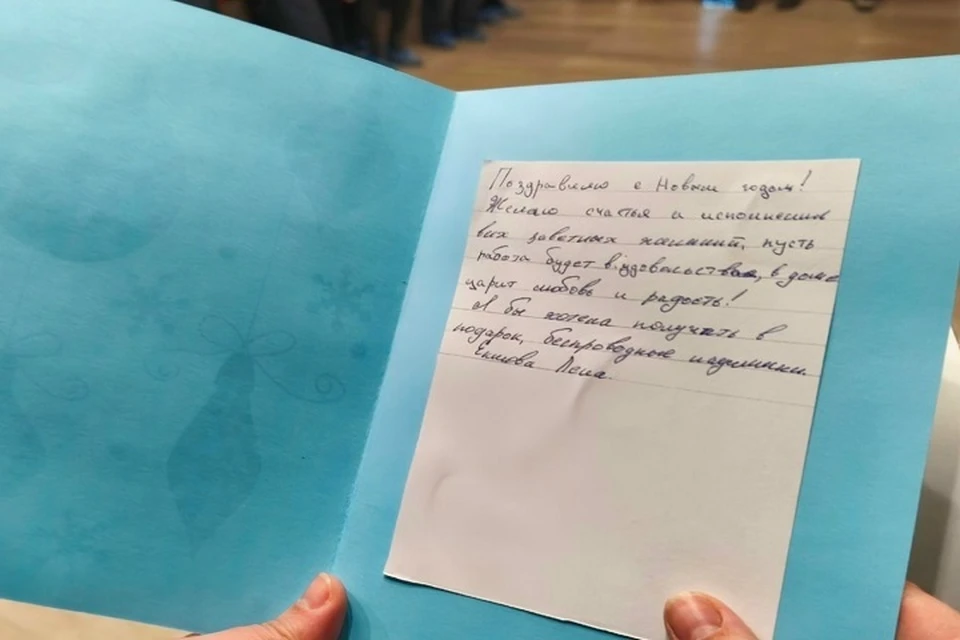 Поздравляю с Новым годом!
Желаю счастья и исполнения
всех заветных желаний, пусть
работа будет в удовольствие, в доме
царит любовь и радость!
Я бы хотела получить в
подарок, беспроводные наушники.
Лена.